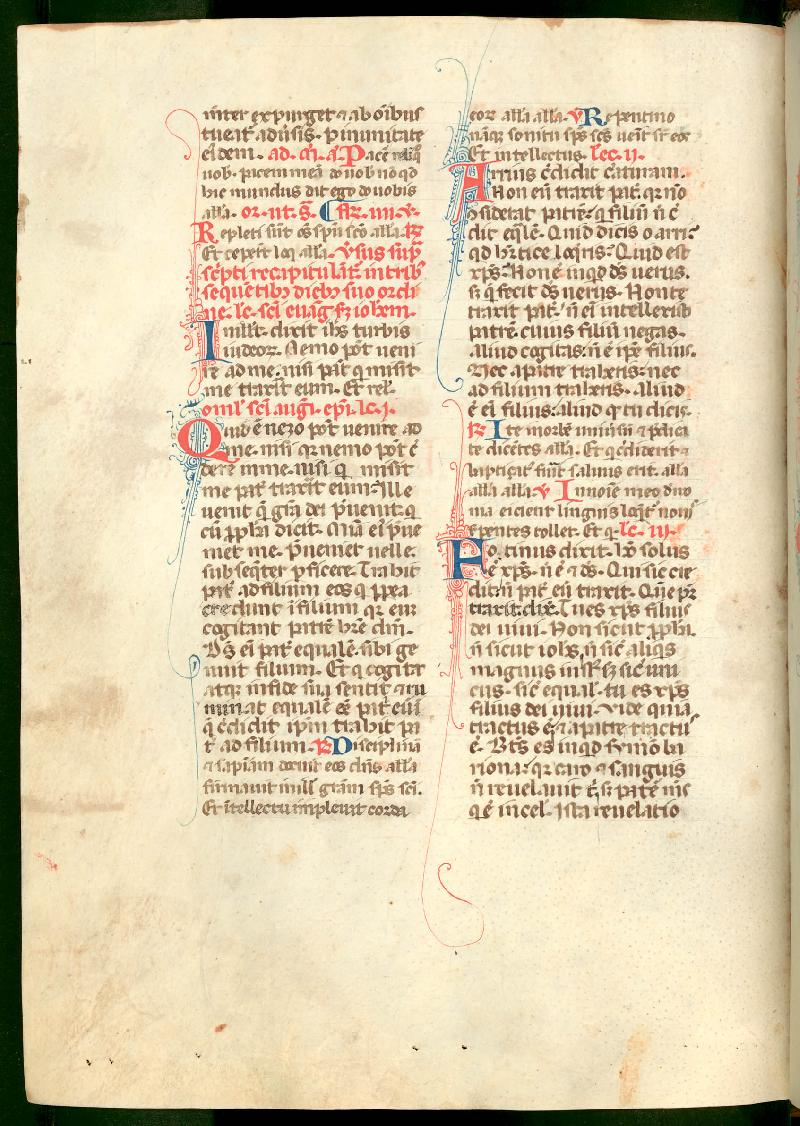 inter expurget ⁊ ab oībus
tueat̄ aduersis. p inunitate
eidem. ad. m̄. a. Pacē relīq̄
uob. pacem meā do uob nō qd̄
hic mundus dit ego do uobis
all'a. or. ut. s̄. Fār. iiii. v.
Repleti sūt oēs spū scō all'a. R
Et ceperūt loq all'a. vsus sup̄
scēpti recapitulāt̄ in trib
sequētibꝫ diebꝫ suo ordi
ne. lc. scī euāḡ sꝫ iohem.
In illt̄. dixit ih̄s turbis
iudeor. Nemo pōt ueni
re ad me: nisi pat̄ q misit
me traxit eum. Et rel.
omł scī augī. epī. lc. i.
Quid ē nezo pōt uenire ad
me. nisi qr nemo pōt c̄
dere in me. nisi q misit
me pat̄ traxit eum: Ille
uenit quē grā dei p̄uenit: q
cū ppħa dicit. Mīa eī p̄ue
niet me. p̄ueniet uelle.
subseq̄ter p̄ficere. Trahit
pat̄ ad filium eos q pp̄ea
credunt ī filium qr eum
cogitant patrē hr̄e dm̄.
Ds̄ eī pat̄ equalē sibi ge
nuit filium. Et q cogitat
atqꝫ in fide sua sentit ⁊ ru
minat equalē eē pat̄ eum
q̄ c̄didit ipm̄ trahit pa
t̄ ad filium. R Disciplinā
⁊ sapiām docuit eos dn̄s all'a
firmauit in ill' grām sps̄ scī.
Et ītellectu impleuit corda
eor all'a all'a. v Repentino
nāqꝫ sonitu sps̄ scs̄ uenit sr̄ eos
Et intellectus. lec. ii.
Arrius c̄didit c̄aturam.
Non eū traxit pat̄. qr nō
ɔsiderat patrē: q filiū n̄ c̄
dit eq̄lē. Quid dicis o arri:
qd̄ hr̄tice loq̄ris: Quid est
xp̄s: Non ē inqd̄ ds̄ uerus.
sꝫ q̄ fecit ds̄ uerus. Non te
traxit pat̄. n̄ eī intellexisti
patrē. cuius filiū negas.
aliud cogitas: n̄ ē ipē filius.
Nec a patre traheris: nec
ad filium traheris. aliud
ē eī filius: aliud q tu dicis.
R Ite in orbē uniūsū ⁊ p̄dica
te dicētes all'a. Et q c̄diderit ⁊
baptiçat̄ fūit saluus erit. all'a
all'a all'a. v In noīe meo dmo
nia eicient linguis loq̄nt̄ nouis
serpentes tollet. Et q. lc. iii.
Fotinus dixit. hō solus
ē xp̄s. n̄ ē ⁊ ds̄. Qui sic cre
dit n̄ pat̄ eū traxit. Quē pat̄
traxit: dixit. Tu es xp̄s filius
dei uiui. Non sicut ppħa.
n̄ sicut iohs̄, n̄ sic̄ aliqs
magnus iust' sꝫ sic̄ uni
cus. sic̄ equal. tu es xp̄s
filius dei uiui. vide quia
tractus ē: ⁊ a patre tractus
ē. Bt̄s es inqd̄ symō ba
riona: qr caro ⁊ sanguis
n̄ reuelauit t̄. sꝫ patē m̄s
q̄ ē in cel. Ista reuelatio